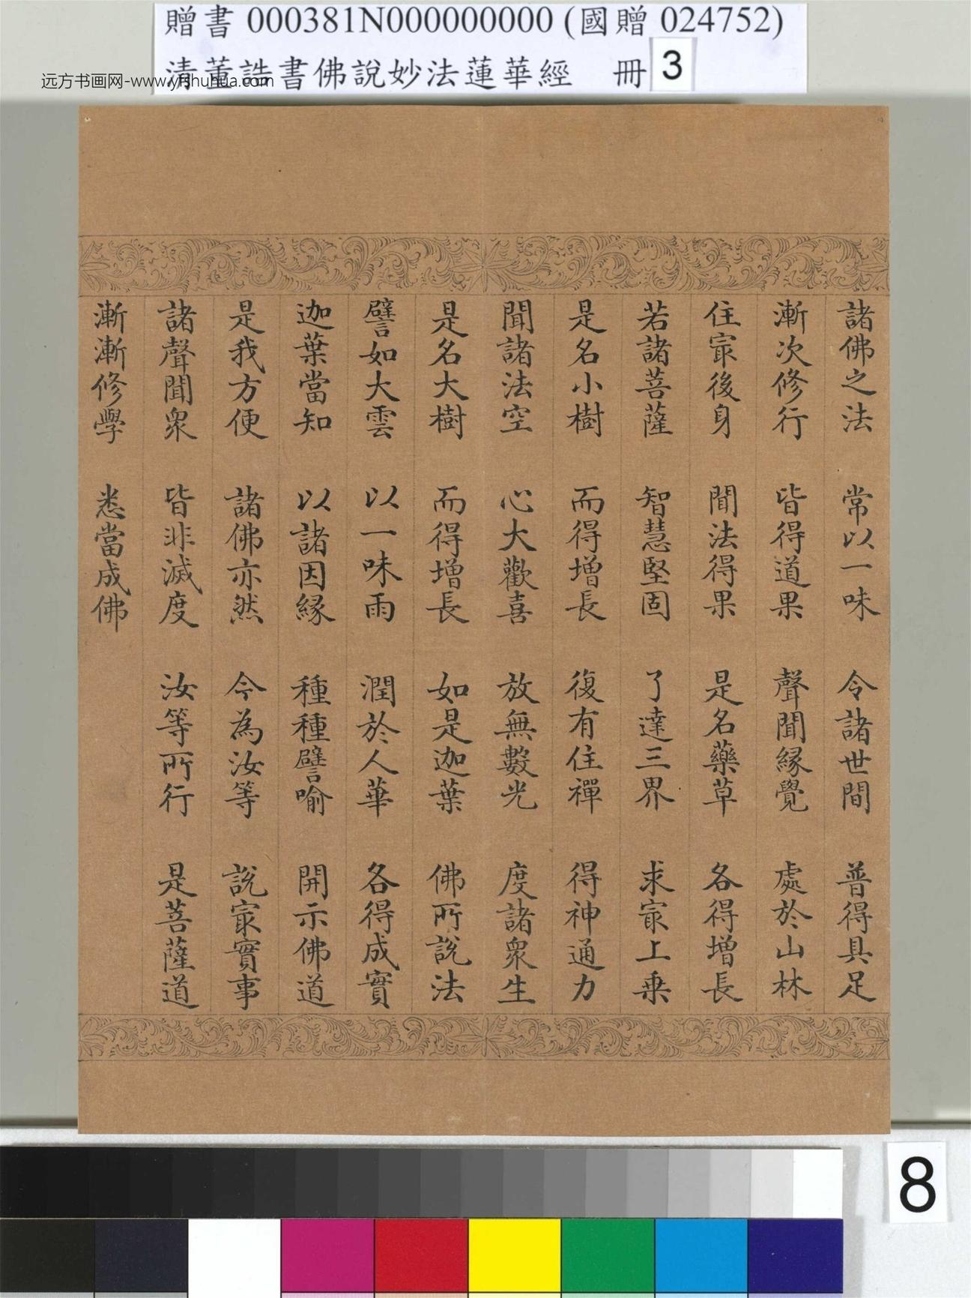 贈書 000381N000000000 (國贈 024752)
清董誥書佛說妙法蓮華經 冊 3
远方书画网-www.yfshuhua.com
諸佛之法 常以一味 令諸世間 普得具足
漸次修行 皆得道果 聲聞緣覺 處於山林
住㝡後身 聞法得果 是名藥草 各得增長
若諸菩薩 智慧堅固 了達三界 求㝡上乘
是名小樹 而得增長 復有住禪 得神通力
聞諸法空 心大歡喜 放無數光 度諸衆生
是名大樹 而得增長 如是迦葉 佛所說法
譬如大雲 以一味雨 潤於人華 各得成實
迦葉當知 以諸因緣 種種譬喻 開示佛道
是我方便 諸佛亦然 今為汝等 說㝡實事
諸聲聞衆 皆非滅度 汝等所行 是菩薩道
漸漸修學 悉當成佛
8